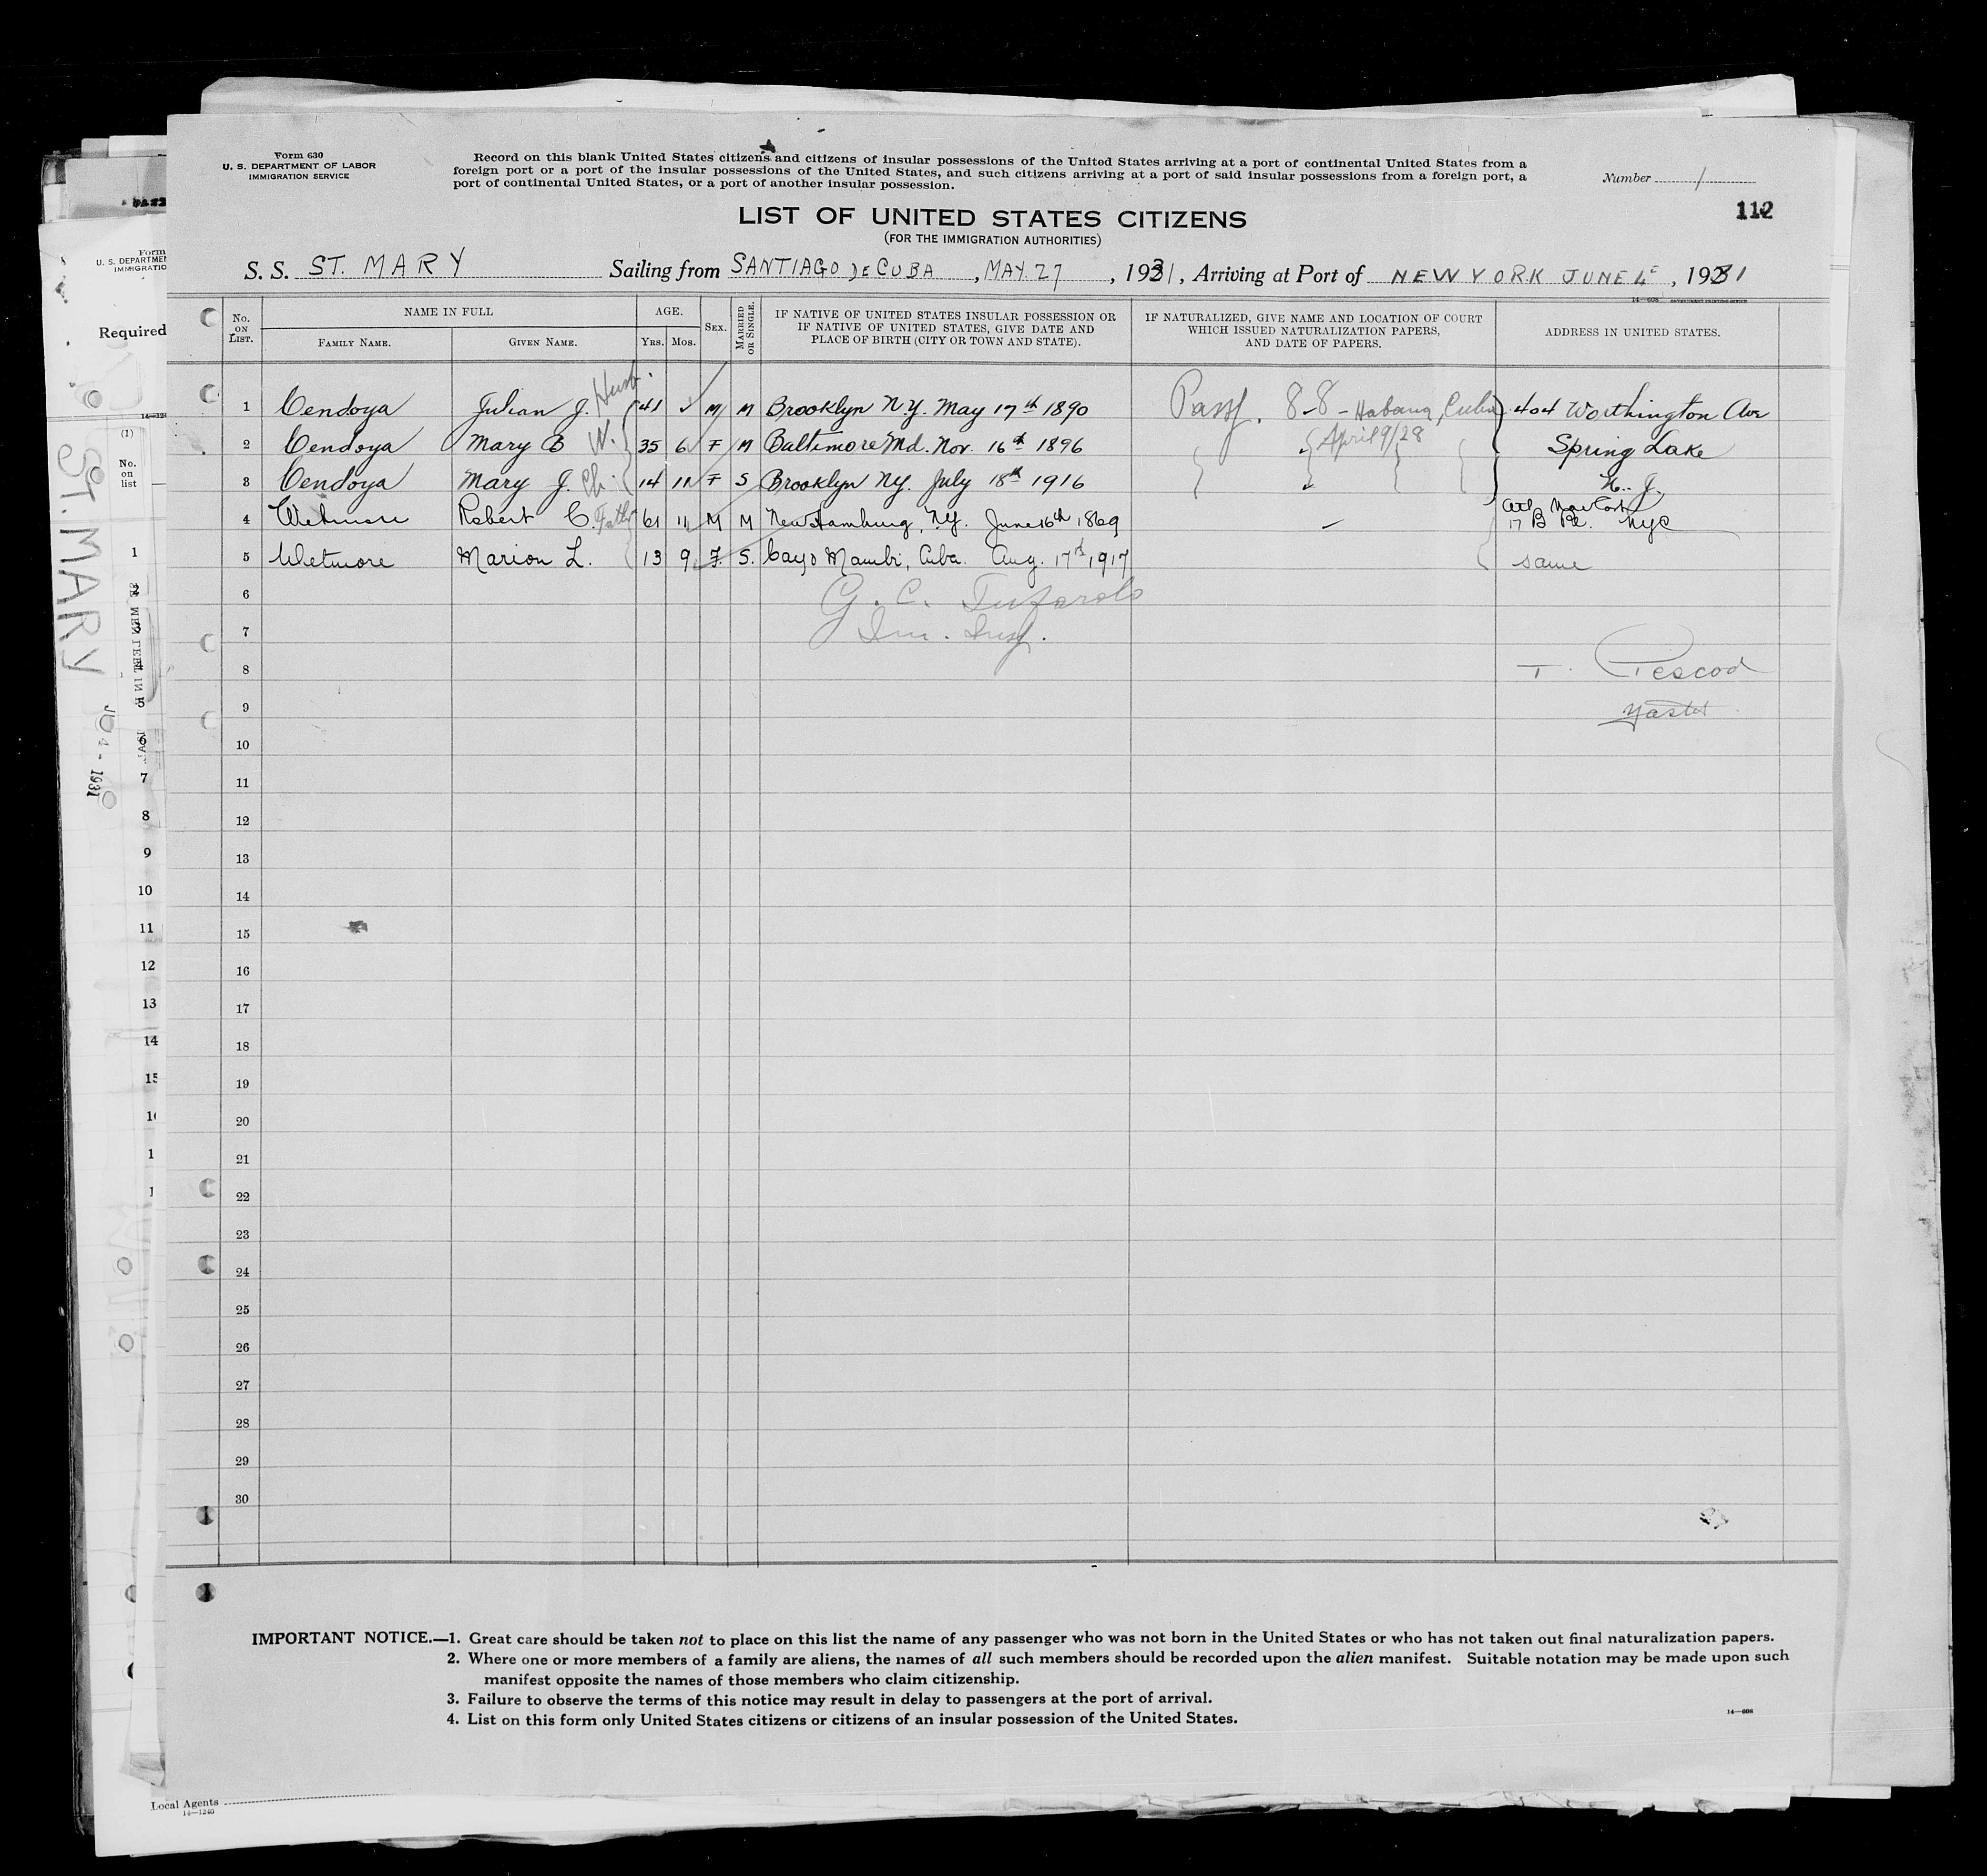 Form 630
U. S. DEPARTMENT OF LABOR
IMMIGRATION SERVICE
Record on this blank United States citizens and citizens of insular possessions of the United States arriving at a port of continental United States from a
foreign port or a port of the insular possessions of the United States, and such citizens arriving at a port of said insular possessions from a foreign port, a
port of continental United States, or a port of another insular possession.
Number 1
112
LIST OF UNITED STATES CITIZENS
(FOR THE IMMIGRATION AUTHORITIES)
S. S. ST. MARY Sailing from SANTIAGO DE CUBA, MAY. 27, 1931, Arriving at Port of NEW YORK JUNE 4, 1931
14—608 GOVERNMENT PRINTING OFFICE
No. ON LIST. NAME IN FULL FAMILY NAME. GIVEN NAME. AGE. YRS. MOS. SEX. MARRIED OR SINGLE.
IF NATIVE OF UNITED STATES INSULAR POSSESSION OR
IF NATIVE OF UNITED STATES, GIVE DATE AND
PLACE OF BIRTH (CITY OR TOWN AND STATE).
IF NATURALIZED, GIVE NAME AND LOCATION OF COURT
WHICH ISSUED NATURALIZATION PAPERS,
AND DATE OF PAPERS.
ADDRESS IN UNITED STATES.
1 Cendoya Julian J. Husb. 41 ✓ M M Brooklyn N.Y. May 17th 1890 Passp. 8-8 - Habana, Cuba 404 Worthington Ave
2 Cendoya Mary B W. 35 6 F M Baltimore Md. Nov. 16th 1896 April 9/28 Spring Lake
3 Cendoya Mary J. Ch. 14 11 F S Brooklyn NY. July 18th 1916 N. J.
4 Wetmore Robert C. Father 61 11 M M New Hamburg, N.Y. June 16th 1869 — 17 B Pl. NYC
5 Wetmore Marion L. 13 9 F. S. Cayo Mambi, Cuba. Aug. 17th 1917 same
6 G. C. Tufarolo
7 Im. Insp.
8 T. Pescod
9
10
11
12
13
14
15
16
17
18
19
20
21
22
23
24
25
26
27
28
29
30
IMPORTANT NOTICE.—1. Great care should be taken not to place on this list the name of any passenger who was not born in the United States or who has not taken out final naturalization papers.
2. Where one or more members of a family are aliens, the names of all such members should be recorded upon the alien manifest. Suitable notation may be made upon such
manifest opposite the names of those members who claim citizenship.
3. Failure to observe the terms of this notice may result in delay to passengers at the port of arrival.
4. List on this form only United States citizens or citizens of an insular possession of the United States.
14—608
Form
U. S. DEPARTME
IMMIGRATIO
Required
(1)
No.
on
list
ST. MARY
1931
1
5
6
7
8
9
10
11
12
13
14
15
Local Agents
14—1240